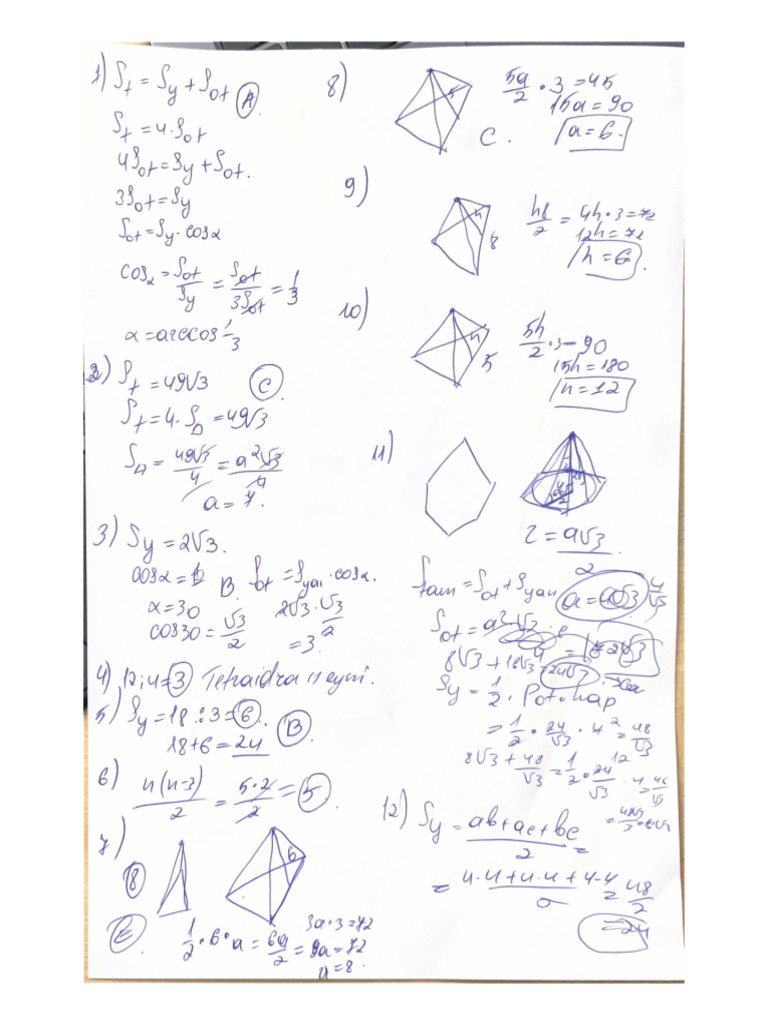 1) St = Sy + Sot (A)
St = 4·Sot
4Sot = Sy + Sot.
3Sot = Sy
Sot = Sy·cosα
cosα = Sot/Sy = Sot/3Sot = 1/3
α = arccos 1/3
2) St = 49√3 (C)
St = 4·SΔ = 49√3
SΔ = 49√3/4 = a²√3/4
a = 7.
3) Sy = 2√3.
B. Sot = Syan·cosα.
α = 30
cos30 = √3/2
2√3·√3/2
= 3.
4) 12:4 = 3
5) Sy = 18:3 = 6. (B)
18+6 = 24
6) n(n-3)/2 = 5·2/2 = 5.
7)
6
18
(E).
1/2·6·a = 6a/2 = 9a = 72
3a·3 = 72
a = 8.
8)
5
5a/2·3 = 45
15a = 90
C. a = 6.
9)
h
8
h8/2 = 4h·3 = 72
12h = 72
h = 6.
10)
h
5
5h/2·3 = 90
15h = 180
h = 12
11)
r = a√3/2
Stam = Sot + Syan
8√3 + 16√3 = 24√3
Sy = 1/2·Pot·hap
= 1/2·24/√3·4 = 48/√3
8√3 + 48/√3 = 1/2·24/√3·4
12) Sy = ab+ac+bc/2 =
= 4·4+4·4+4·4/2 = 48/2
= 24